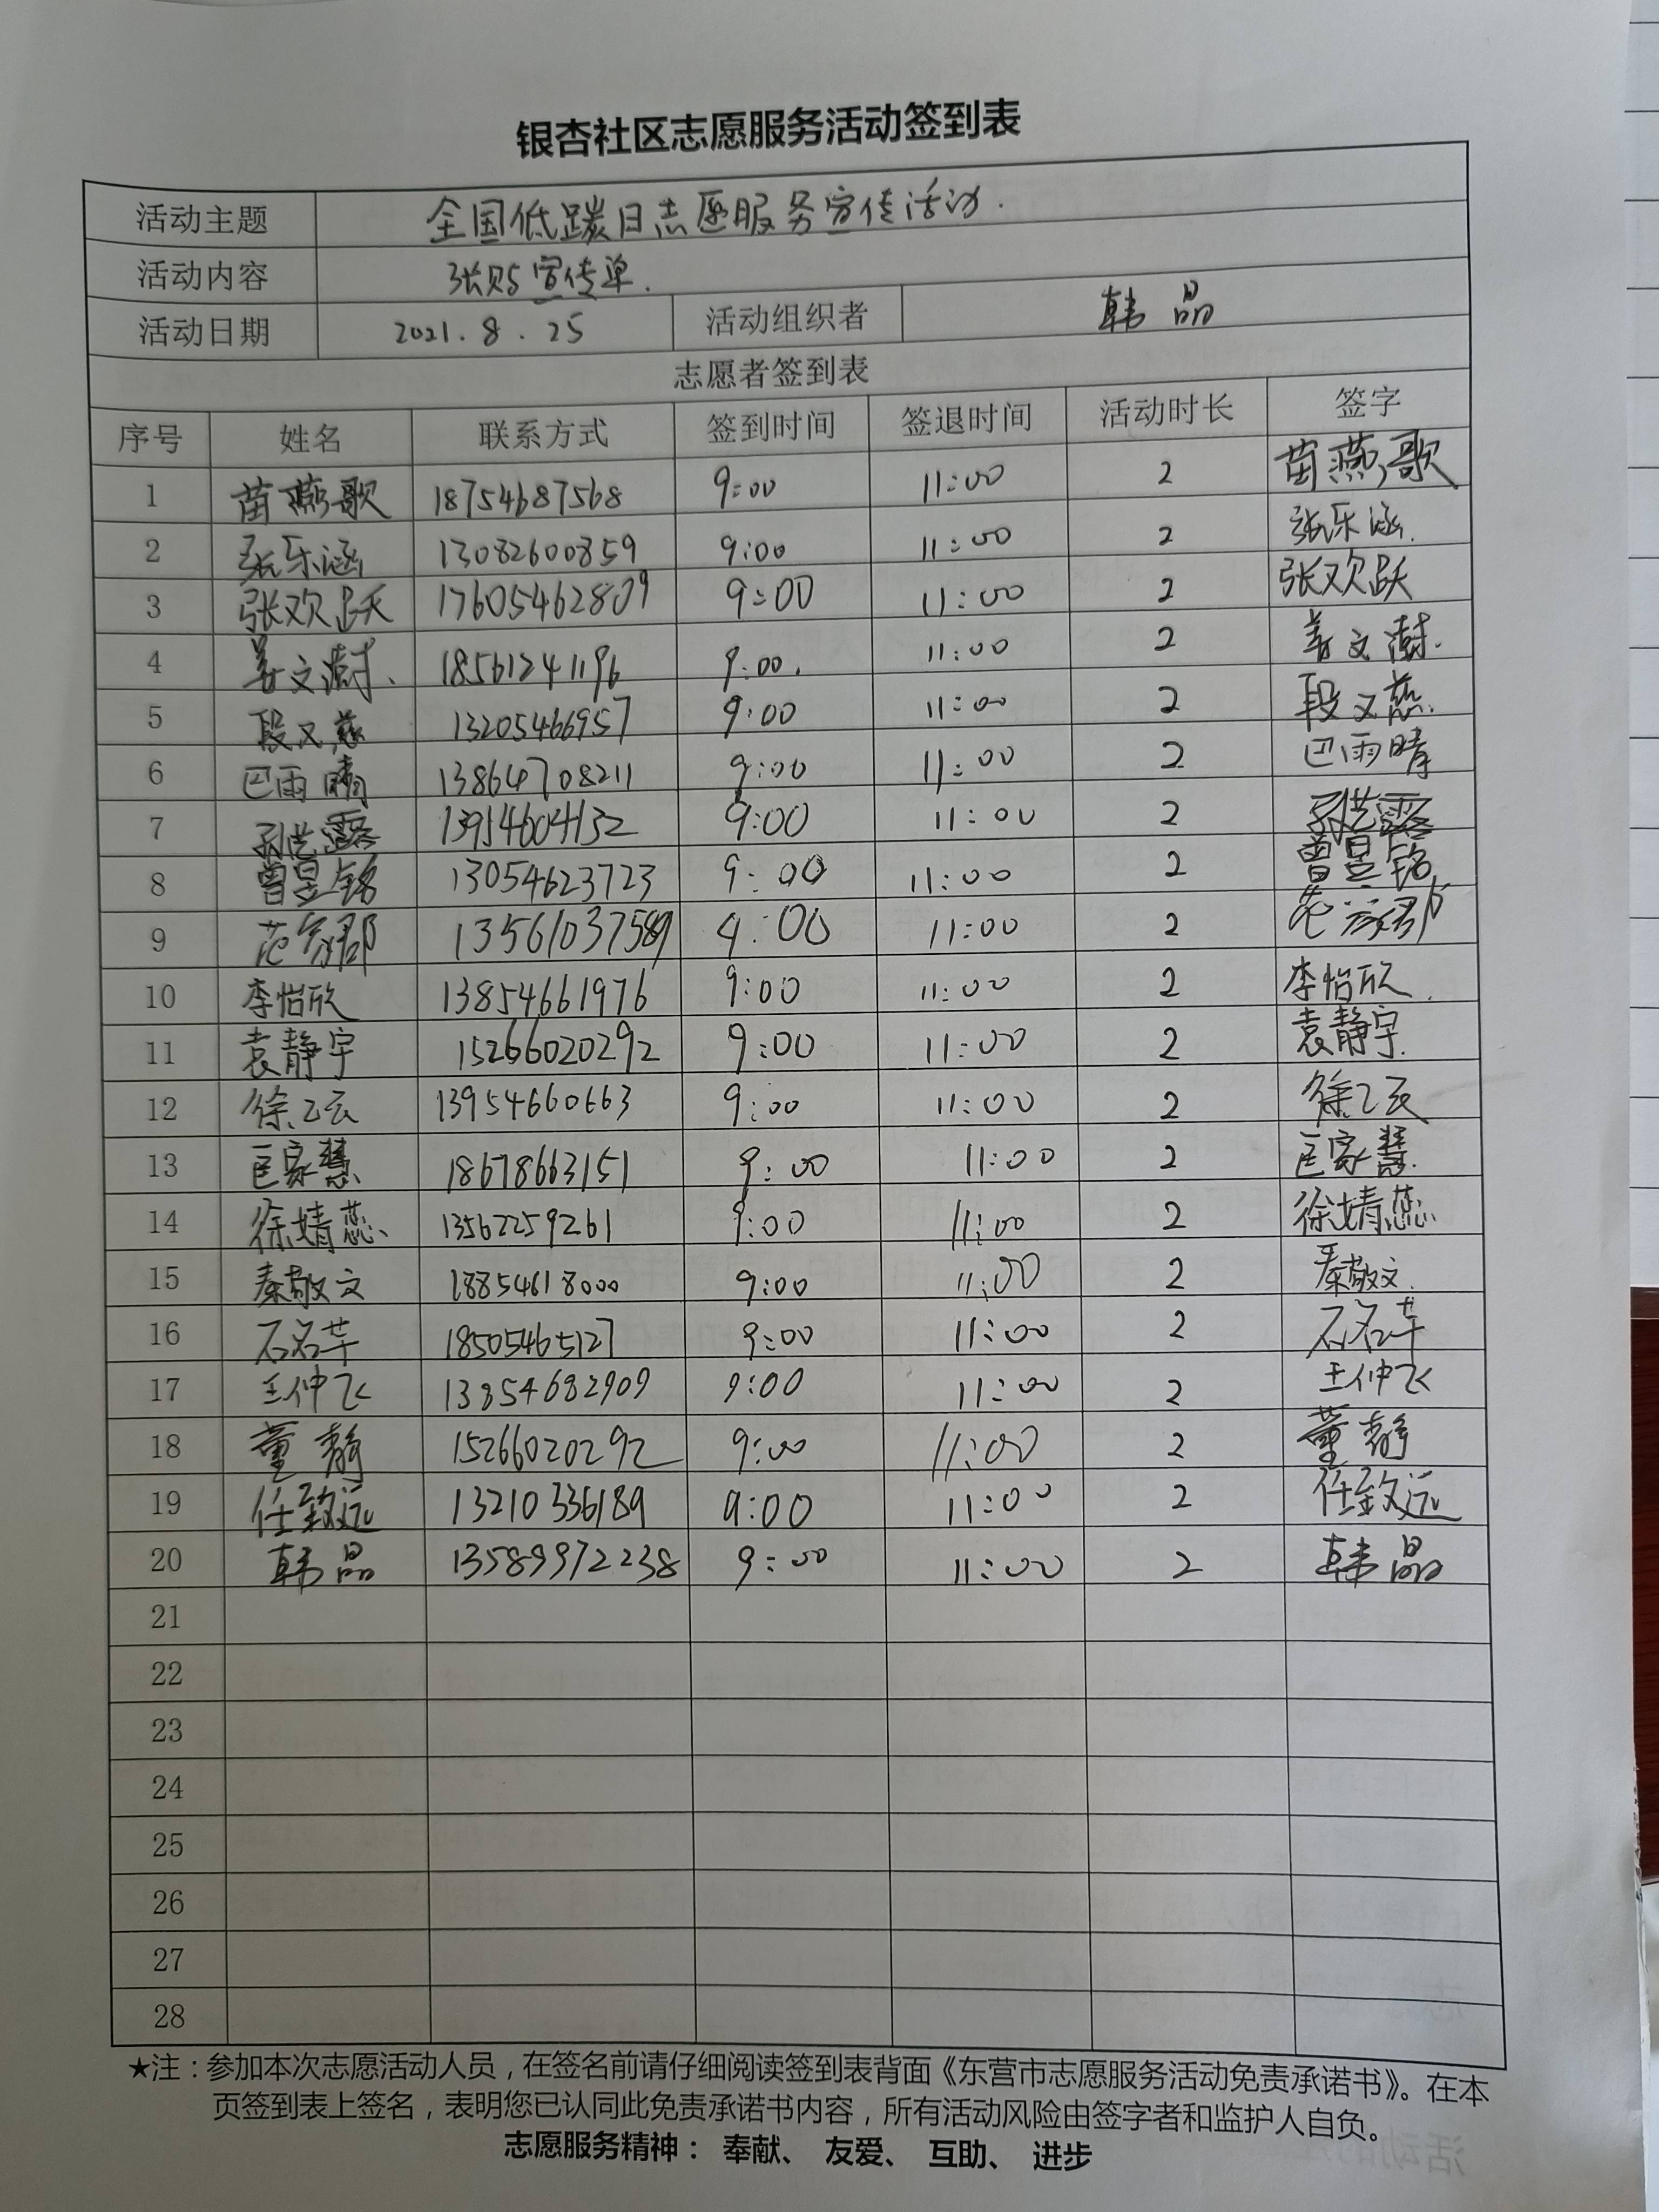 银杏社区志愿服务活动签到表
活动主题 全国低碳日志愿服务宣传活动.
活动内容 张贴宣传单.
活动日期 2021.8.25 活动组织者 韩晶
志愿者签到表
序号 姓名 联系方式 签到时间 签退时间 活动时长 签字
1 苗燕歌 18754687568 9:00 11:00 2 苗燕歌
2 张乐涵 13082600859 9:00 11:00 2 张乐涵.
3 张欢跃 17605462809 9:00 11:00 2 张欢跃
4 姜文澍. 18561241196 9:00. 11:00 2 姜文澍.
5 段又慈 13205466957 9:00 11:00 2 段又慈.
6 巴雨晴 13864708211 9:00 11:00 2 巴雨晴
7 孙艺露 13954604132 9:00 11:00 2 孙艺露
8 曾昱铭 13054623723 9:00 11:00 2 曾昱铭
9 范 13561037589 9:00 11:00 2 范
10 李怡欣 13854661976 9:00 11:00 2 李怡欣.
11 袁静宇 15266020292 9:00 11:00 2 袁静宇.
12 徐乙云 13954660663 9:00 11:00 2 徐乙云
13 匡家慧 18678663151 9:00 11:00 2 匡家慧.
14 徐婧蕊、 13562259261 9:00 11:00 2 徐婧蕊
15 秦敬文 18854618000 9:00 11:00 2 秦敬文.
16 石茗芊 18505465127 9:00 11:00 2 石茗芊
17 王仲飞 13854682909 9:00 11:00 2 王仲飞
18 董静 15266020292 9:00 11:00 2 董静
19 任致远 13210336189 9:00 11:00 2 任致远
20 韩晶 13589972238 9:00 11:00 2 韩晶
21
22
23
24
25
26
27
28
★注：参加本次志愿活动人员，在签名前请仔细阅读签到表背面《东营市志愿服务活动免责承诺书》。在本
页签到表上签名，表明您已认同此免责承诺书内容，所有活动风险由签字者和监护人自负。
志愿服务精神： 奉献、 友爱、 互助、 进步